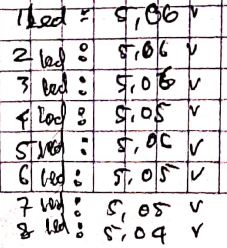 1 Led : 5,06 v
2 led : 5,06 v
3 led : 5,06 v
4 led : 5,05 v
5 led : 5,05 v
6 led : 5,05 v
7 led : 5,05 v
8 led : 5,04 v